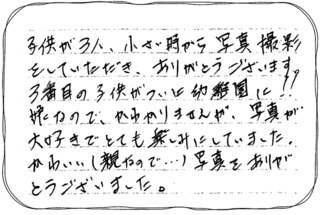 子供が3人、小さい時から写真撮影
をしていただき、ありがとうございます。
3番目の子供がついに幼稚園に!!
なので、かわりませんが、写真が
大好きでとても楽しみにしていました。
かわいい(親なので…)写真をありが
とうございました。